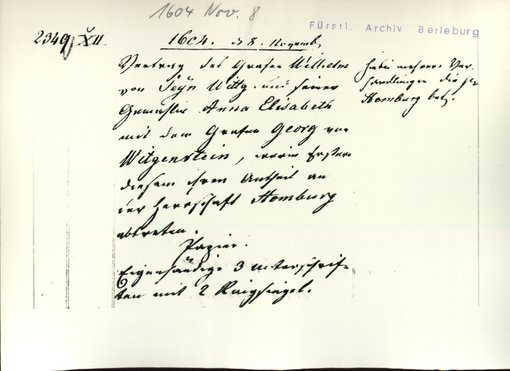 1604 Nov. 8
Fürstl. Archiv Berleburg
2349 XII.
1604. d 8. Novemb.
Vertrag des Grafen Wilhelm
von Seyn Wittg. und seiner
Gemahlin Anna Elisabeth
mit dem Grafen Georg von
Witgenstein, worin Erstere
diesem ihren Antheil an
der Herrschaft Homburg
abtreten.
Papier.
Eigenhändige 3 Unterschrif-
ten mit 2 Ringsiegel.
hiebei mehrere Ver-
handlungen die
Homburg betr.